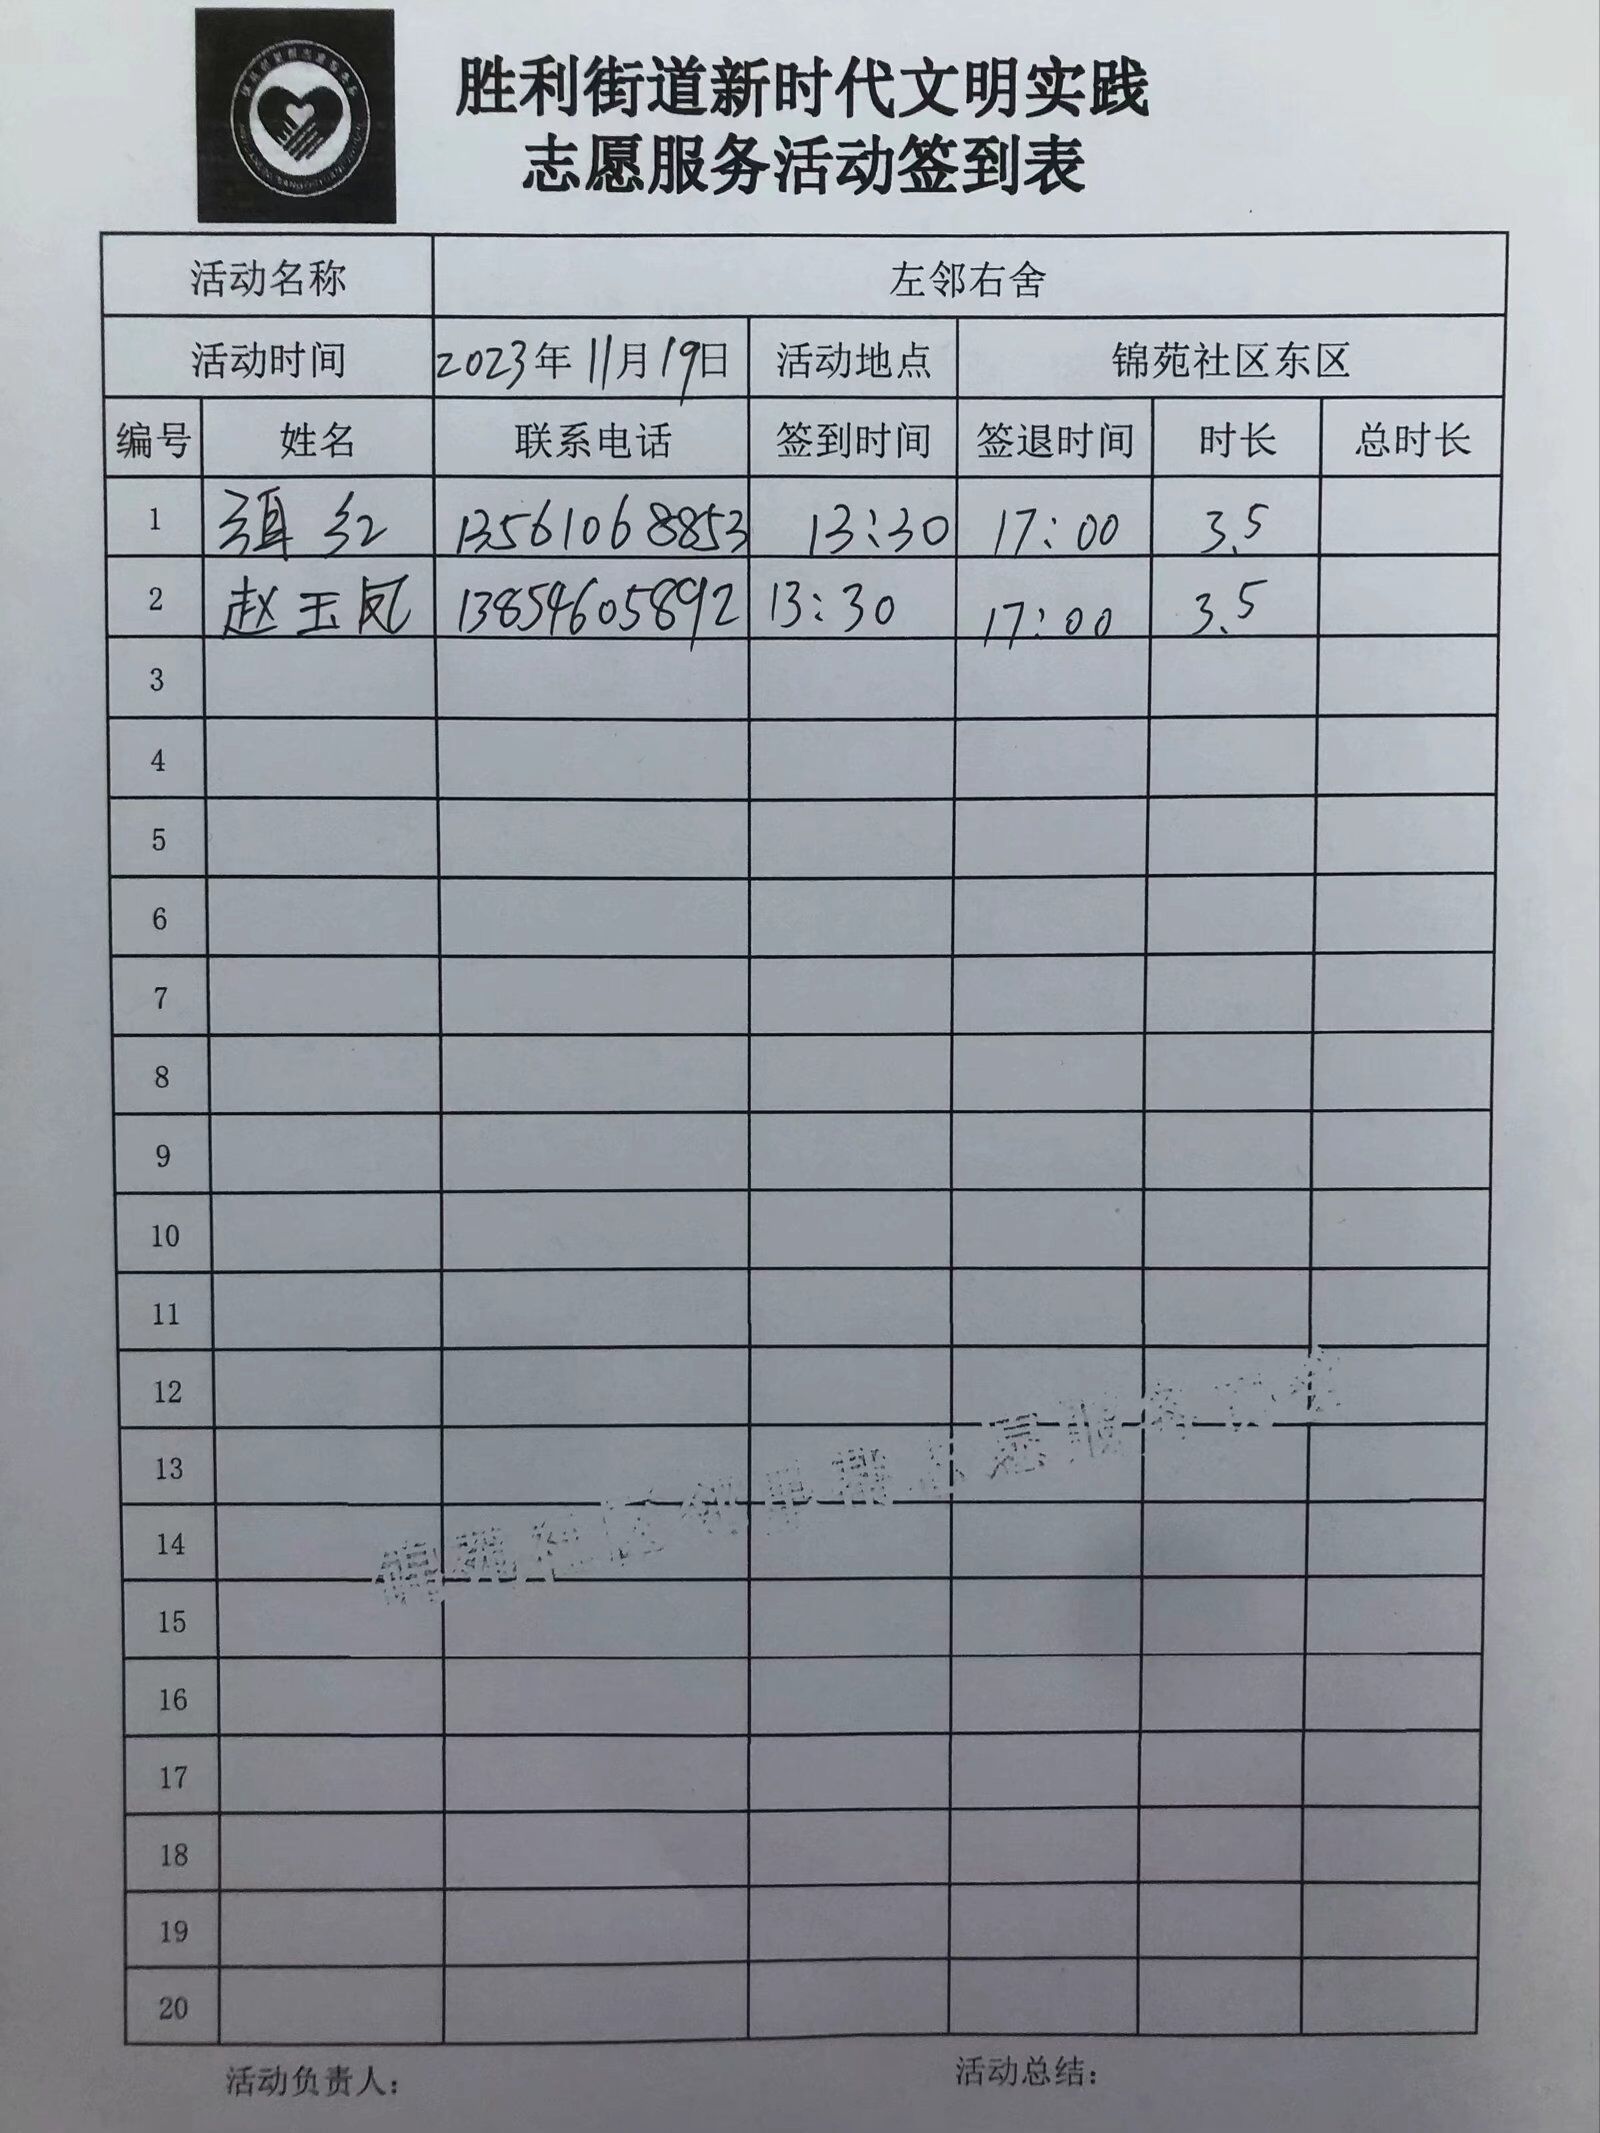 胜利街道新时代文明实践
志愿服务活动签到表
活动名称 左邻右舍
活动时间 2023年 11月19日 活动地点 锦苑社区东区
编号 姓名 联系电话 签到时间 签退时间 时长 总时长
1 红 13561068853 13:30 17:00 3.5
2 赵玉凤 13854605892 13:30 17:00 3.5
3
4
5
6
7
8
9
10
11
12
13
14
15
16
17
18
19
20
活动负责人: 活动总结: